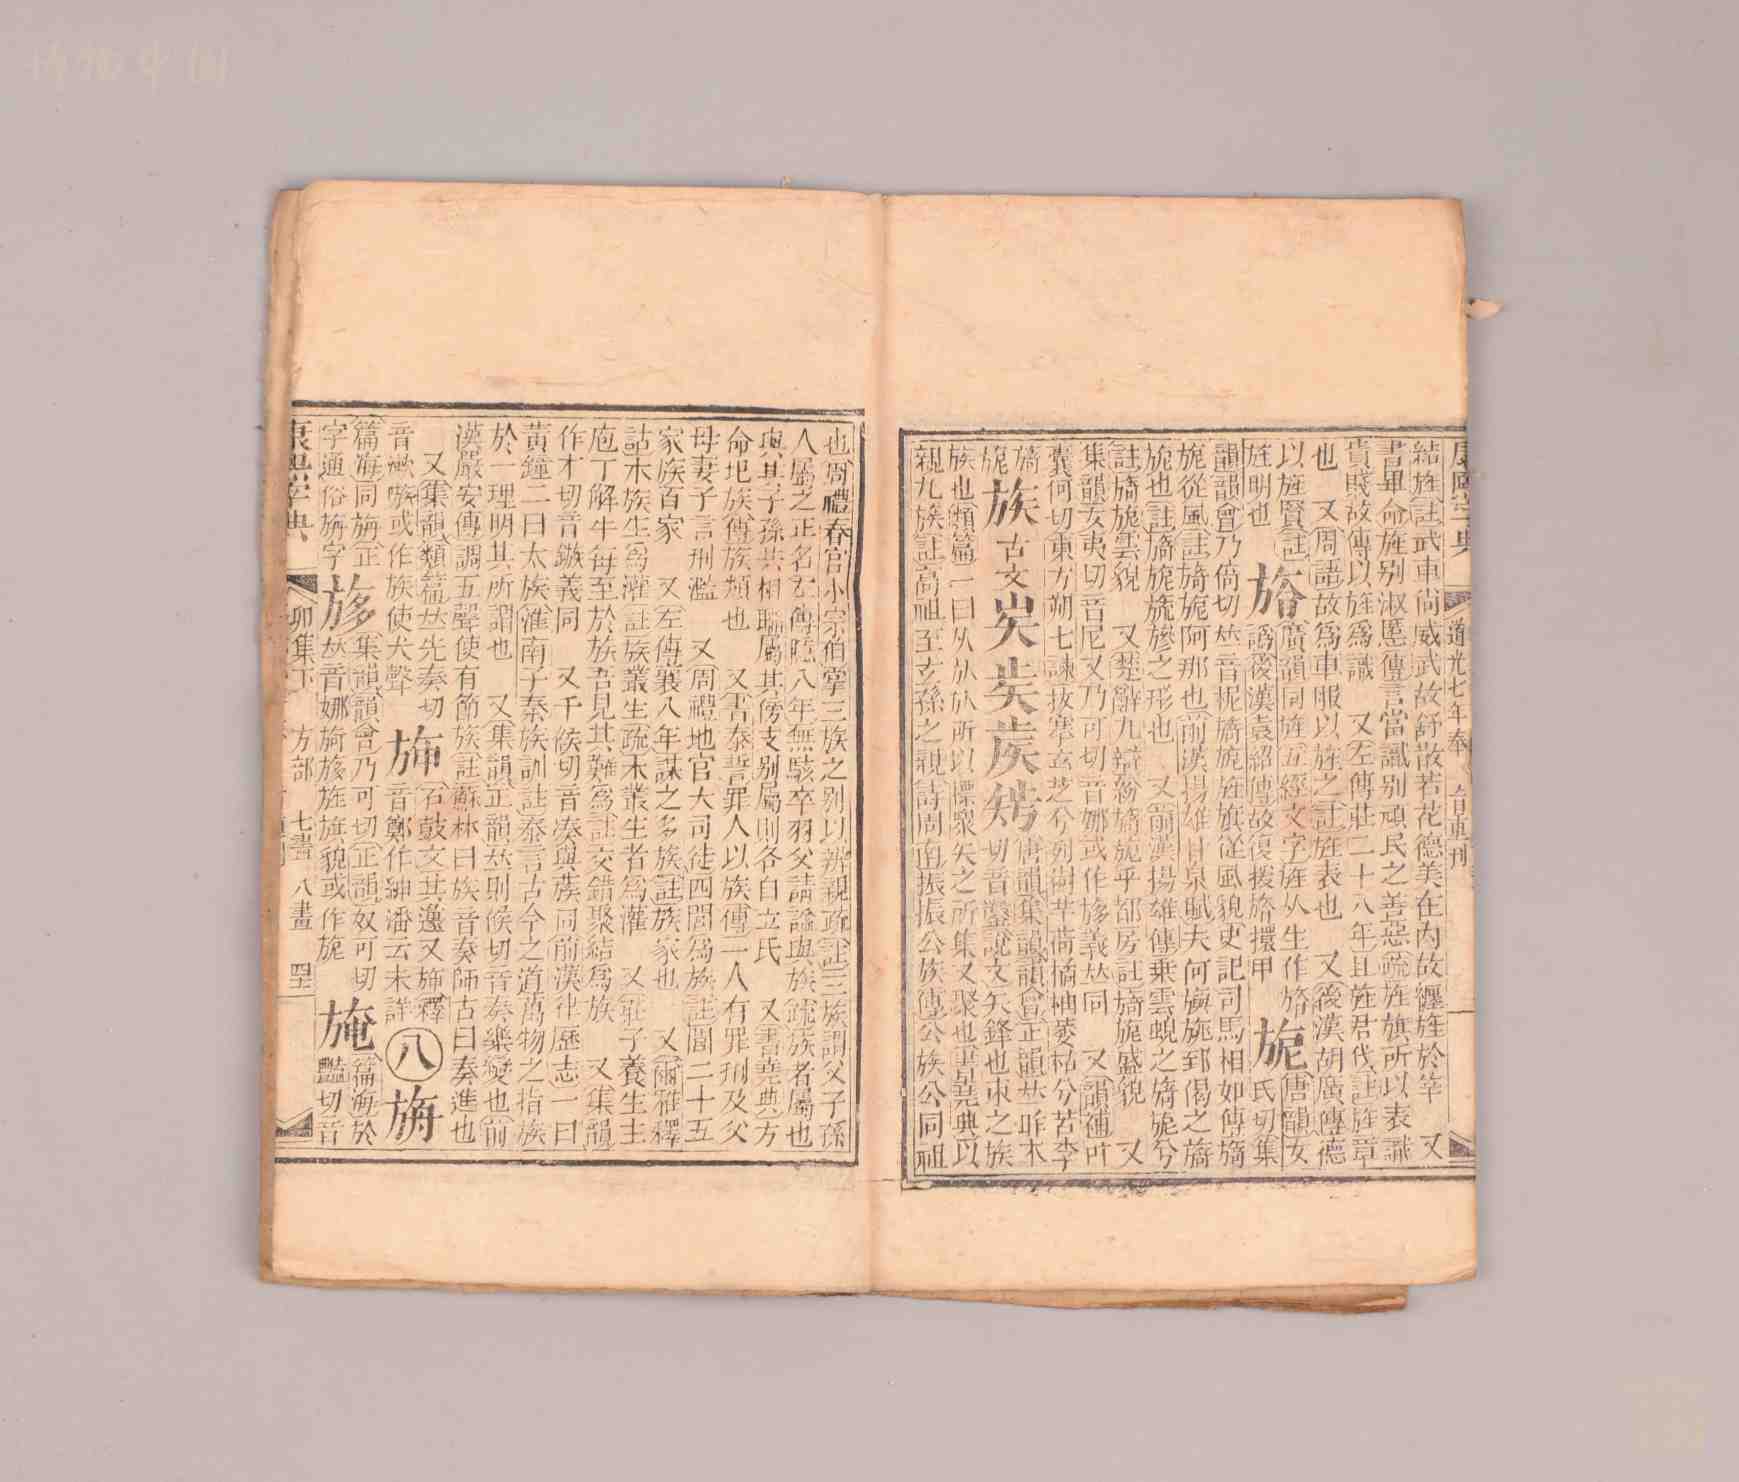 康熙字典 道光七年奉 旨重刊
結旌註武車尙威武故舒散若花德美在內故纏旌於竿 又
書畢命旌别淑慝傳言當識別頑民之善惡疏旌旗所以表識
貴賤故傳以旌爲識 又左傳莊二十八年且旌君伐註旌章
也 又周語故爲車服以旌之註旌表也 又後漢胡廣傳德
以旌賢註
旌明也 㫊 廣韻同旌五經文字旌从生作㫊
譌後漢袁紹傳故復援旍擐甲 旎 唐韻女
氏切集
韻韻會乃倚切𠀤音柅旖旎旌旗從風貌史記司馬相如傳旖
旎從風註旖旎阿那也前漢揚雄甘泉賦夫何旟旐郅偈之旖
旎也註旖旎旒旝之形也 又前漢揚雄傳乗雲蜺之旖旎兮
註旖旎雲貌 又楚辭九辯紛旖旎乎都房註旖旎盛貌 又
集韻女夷切音尼又乃可切音娜或作㫊義𠀤同 又韻補叶
囊何切東方朔七諫拔搴玄芝兮列樹芋荷橘柚萎枯兮苦李
旖
旎 族 古文 㞺 𤯌 𥎦 唐韻集韻韻會正韻𠀤昨木
切音鏃說文矢鋒也束之族
族也類篇一曰从㫃㫃所以標衆矢之所集又聚也書堯典以
親九族註高祖至玄孫之親詩周南振振公族傳公族公同祖
也周禮春官小宗伯掌三族之别以辨親疏註三族謂父子孫
人屬之正名左傳隱八年無駭卒羽父請諡與族疏族者屬也
與其子孫共相聯屬其傍支别屬則各自立氏 又書堯典方
命圯族傳族類也 又書泰誓罪人以族傳一人有罪刑及父
母妻子言刑濫 又周禮地官大司徒四閭爲族註閭二十五
家族百家 又左傳襄八年謀之多族註族家也 又爾雅釋
詁木族生爲灌註族叢生疏木叢生者爲灌 又莊子養生主
庖丁解牛每至於族吾見其難爲註交錯聚結爲族 又集韻
作木切音鏃義同 又千候切音湊與蔟同前漢律歷志一曰
黃鐘二曰太族淮南子泰族訓註泰言古今之道萬物之指族
於一理明其所謂也 又集韻正韻𠀤則候切音奏樂變也前
漢嚴安傳調五聲使有節族註蘇林曰族音奏師古曰奏進也
又集韻類篇𠀤先奏切
音嗽嗾或作族使犬聲 㫍 石鼓文其邍又㫍釋
音鄭作紳潘云未詳 八 旃
篇海同旃正
字通俗旃字 㫊 集韻韻會乃可切正韻奴可切
𠀤音娜旖㫊旌旗貌或作旎 㫈 篇海於
豔切音
康熙字典 卯集下 方部 七畫 八畫